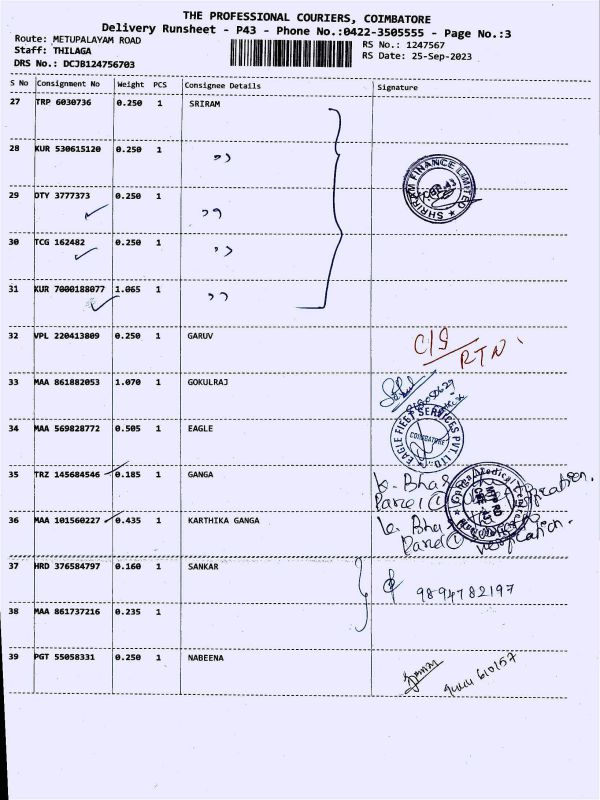 THE PROFESSIONAL COURIERS, COIMBATORE
Delivery Runsheet - P43 - Phone No.:0422-3505555 - Page No.:3
Route: METUPALAYAM ROAD
Staff: THILAGA
DRS No.: DCJB124756703
RS No.: 1247567
RS Date: 25-Sep-2023
S No Consignment No Weight PCS Consignee Details Signature
27 TRP 6030736 0.250 1 SRIRAM
28 KUR 530615120 0.250 1 ,,
29 DTY 3777373 0.250 1 ,,
30 TCG 162482 0.250 1 ,,
31 KUR 7000188077 1.065 1 ,,
SHRIRAM FINANCE LIMITED
32 VPL 220413809 0.250 1 GARUV
C/S
RTN
33 MAA 861882053 1.070 1 GOKULRAJ
34 MAA 569828772 0.505 1 EAGLE
EAGLE FLEET SERVICES PVT. LTD.
COIMBATORE
35 TRZ 145684546 0.185 1 GANGA
k. Bhas
Parcel verification.
36 MAA 101560227 0.435 1 KARTHIKA GANGA
k. Bhas
Parcel verification.
Ganga Medical Centre
MTP RD
CBE-43
37 HRD 376584797 0.160 1 SANKAR
9894782197
38 MAA 861737216 0.235 1
39 PGT 55058331 0.250 1 NABEENA